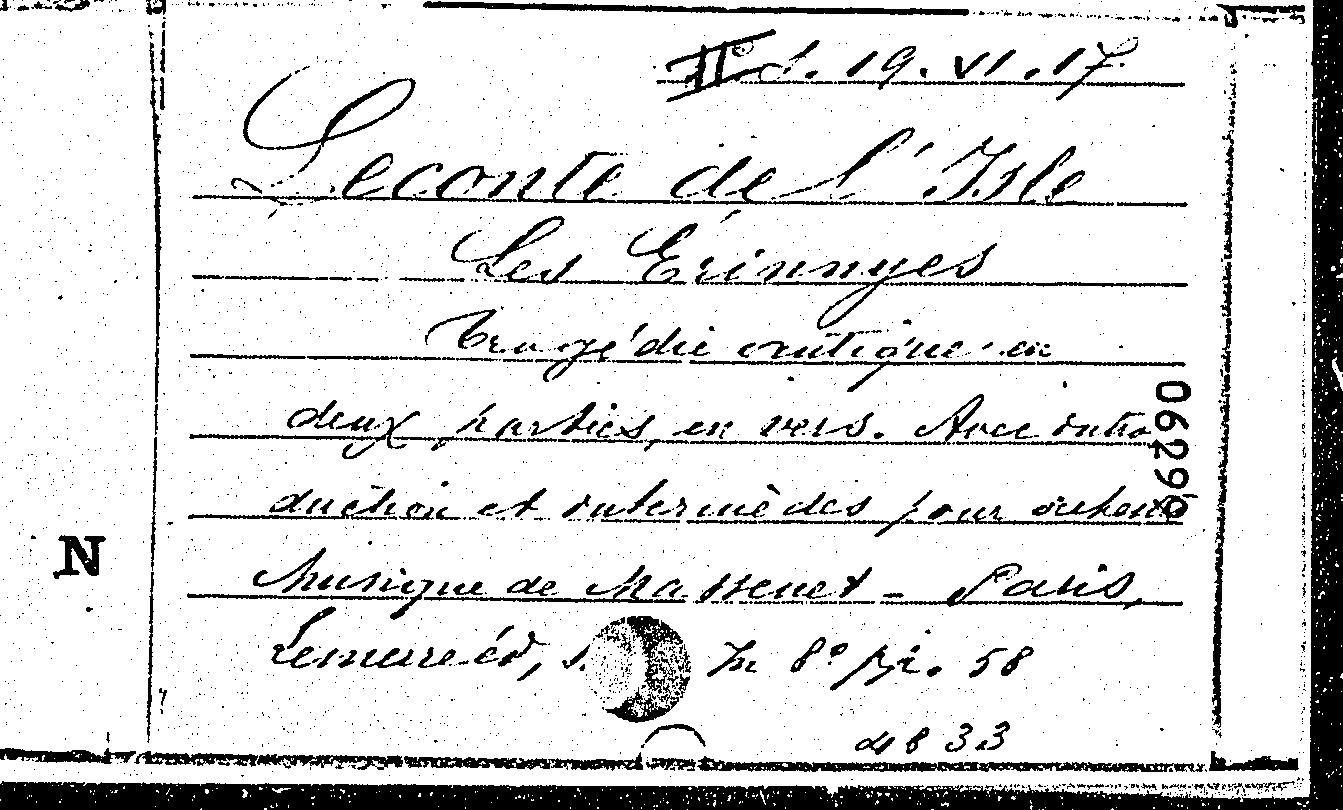 IIº d. 19. VI. 17
Leconte de l'Isle
Les Érinnyes
Tragédie antique en
deux parties, en vers. Avec intro
duction et intermèdes pour
Musique de Massenet - Paris,
Lemerre éd, s. In 8º pp. 58
4833
06296
N